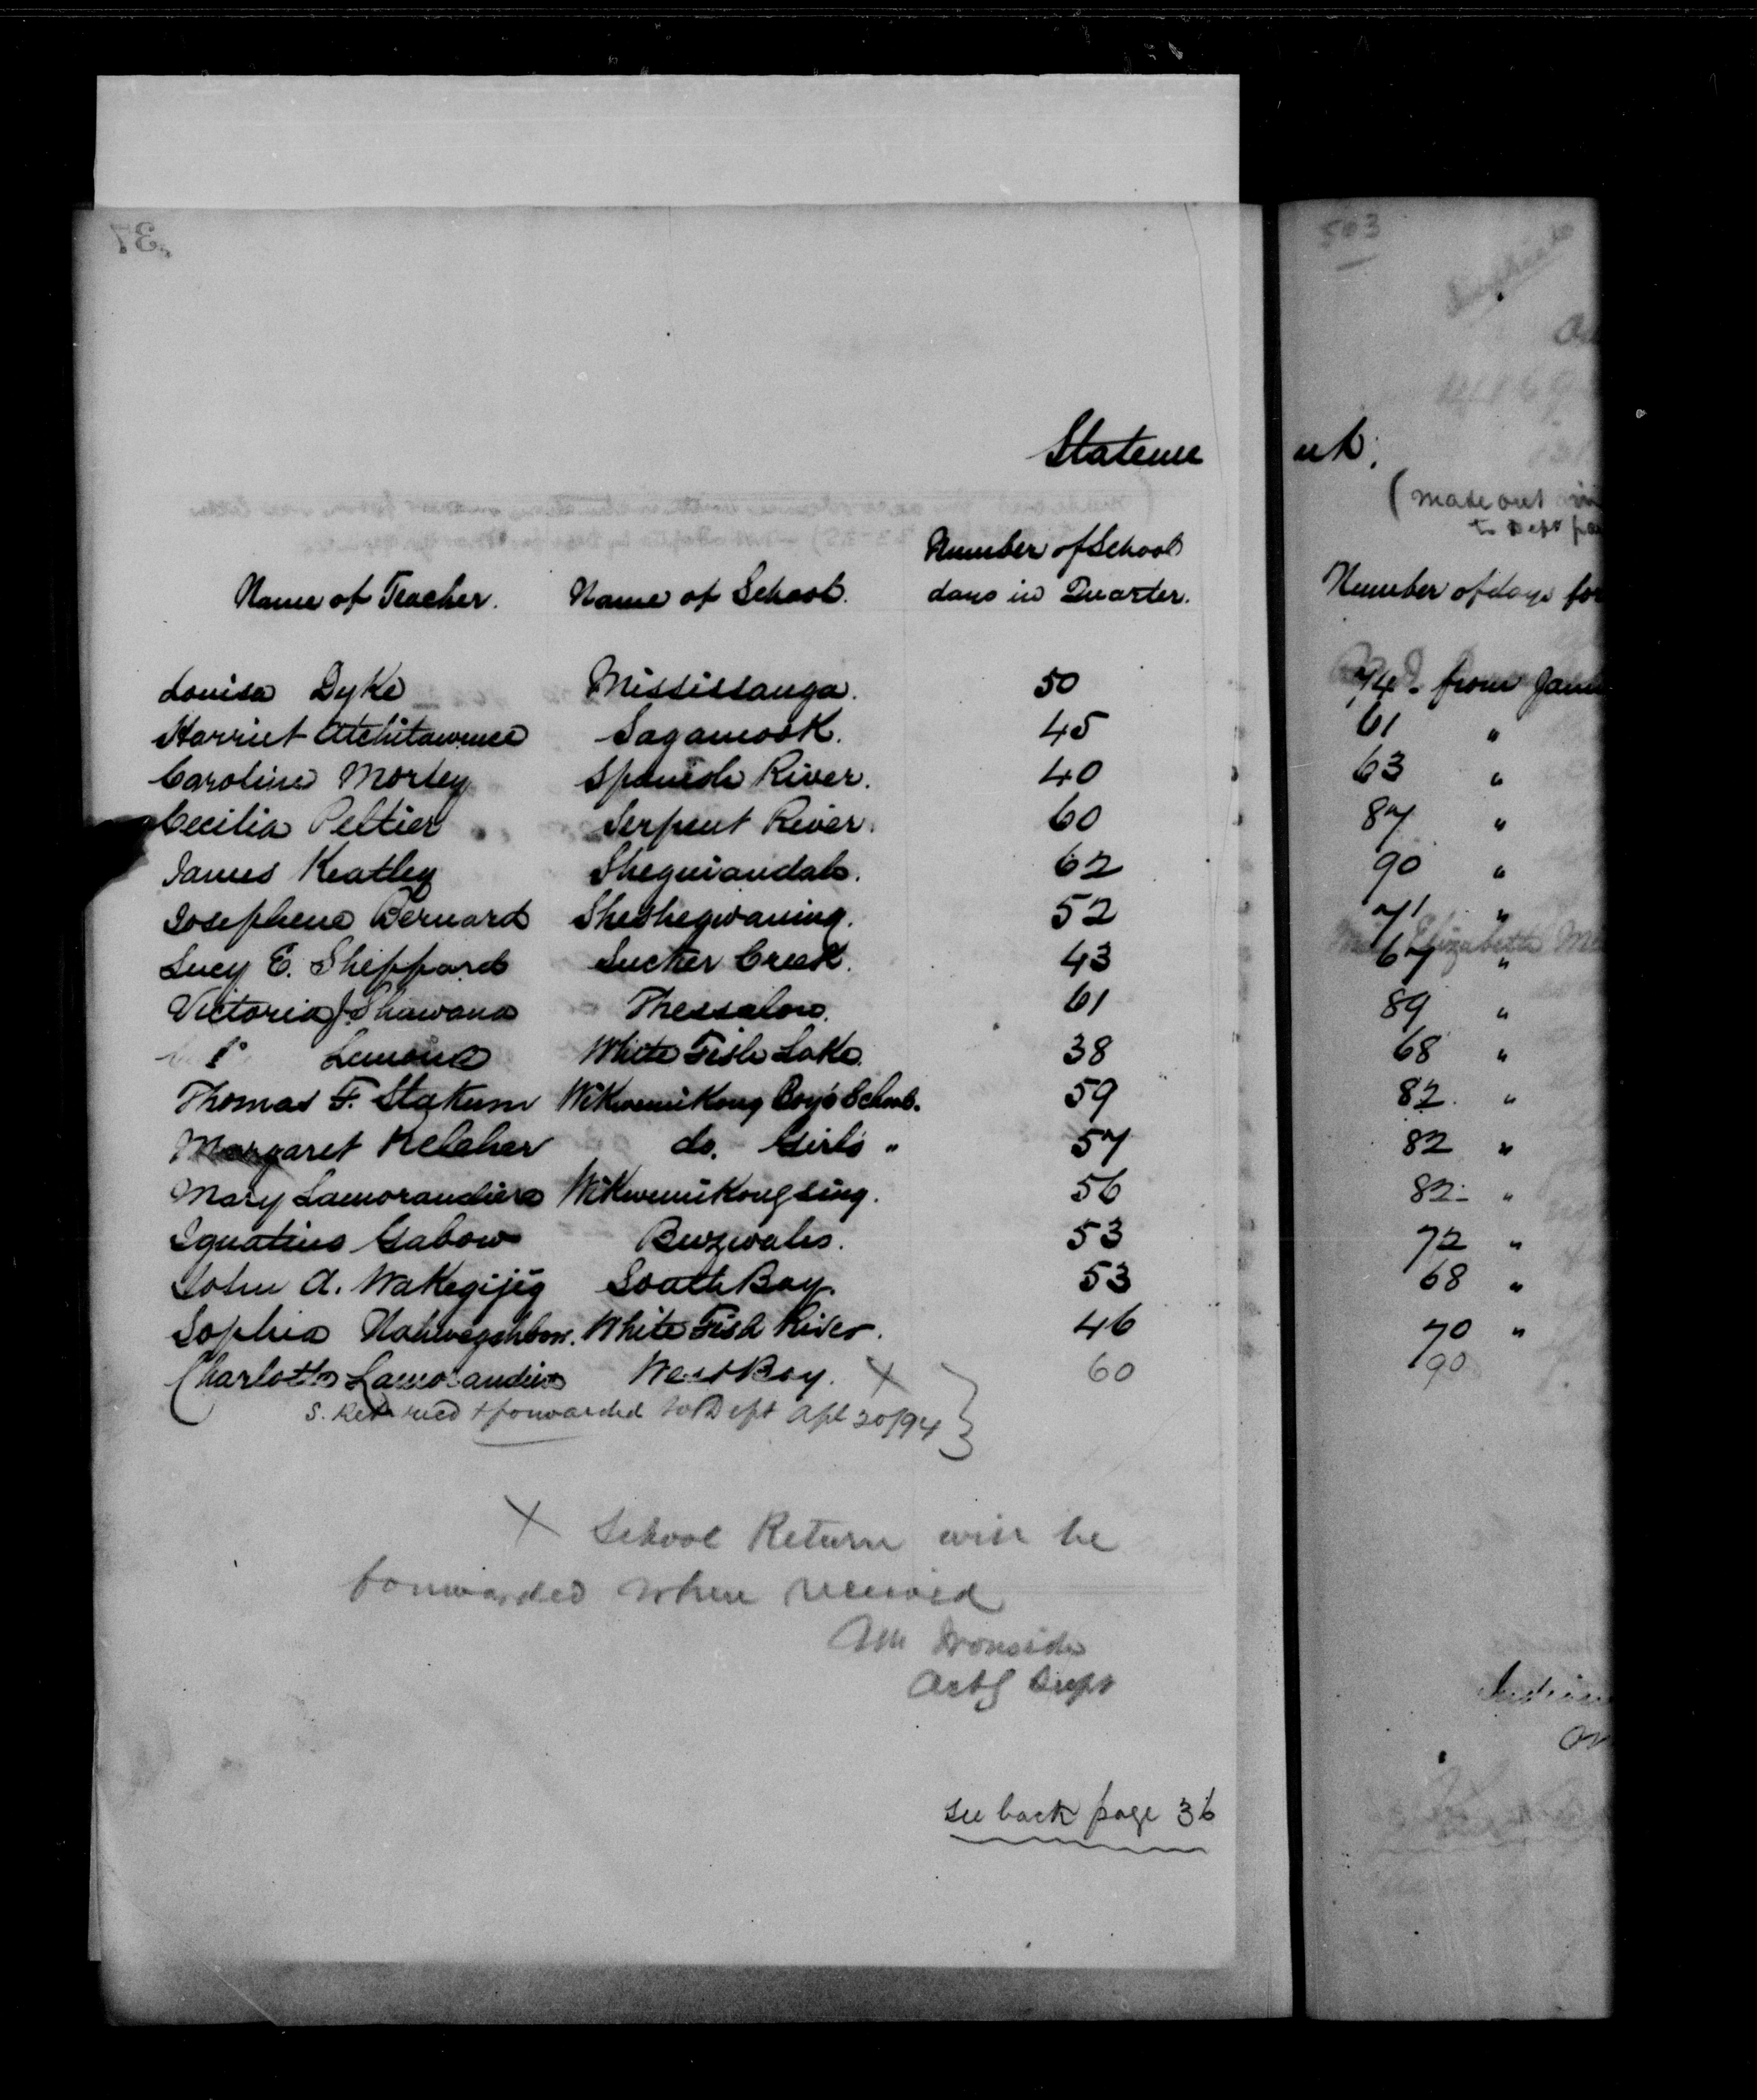 37
503
Stateme nt.
(made out in
to Dept pa
Number of School
Name of Teacher. Name of School. days in Quarter. Number of days for
Louisa Dyke Mississauga. 50 74 - from Janu
Harriet Atchitawence Sagamook. 45 61 "
Caroline Morley Spanish River. 40 63 "
Cecilia Peltier Serpent River. 60 87 "
James Keatley Sheguiandah. 62 90 "
Josephene Bernard Sheshegwaning. 52 71 "
Lucy E. Sheppard Sucker Creek. 43 67 "
Victoria J. Shawana Thessalon. 61 89 "
Lemoine White Fish Lake. 38 68 "
Thomas F. Stakum Wikwemikong Boy's School. 59 82 "
Margaret Kelcher do. Girls " 57 82 "
Mary Lamorandiere Wikwemikongsing. 56 82 "
Ignatius Gabow Buzwahs. 53 72 "
John A. Wakegijig South Bay. 53 68 "
Sophia Nahwegahbow. White Fish River. 46 70 "
Charlotte Lamorandiere West Bay. X 60 90
S. Ret. recd & forwarded to Dept Apl 20/94
X School Return will be
forwarded when received
Ironside
Actg Supt
see back page 36